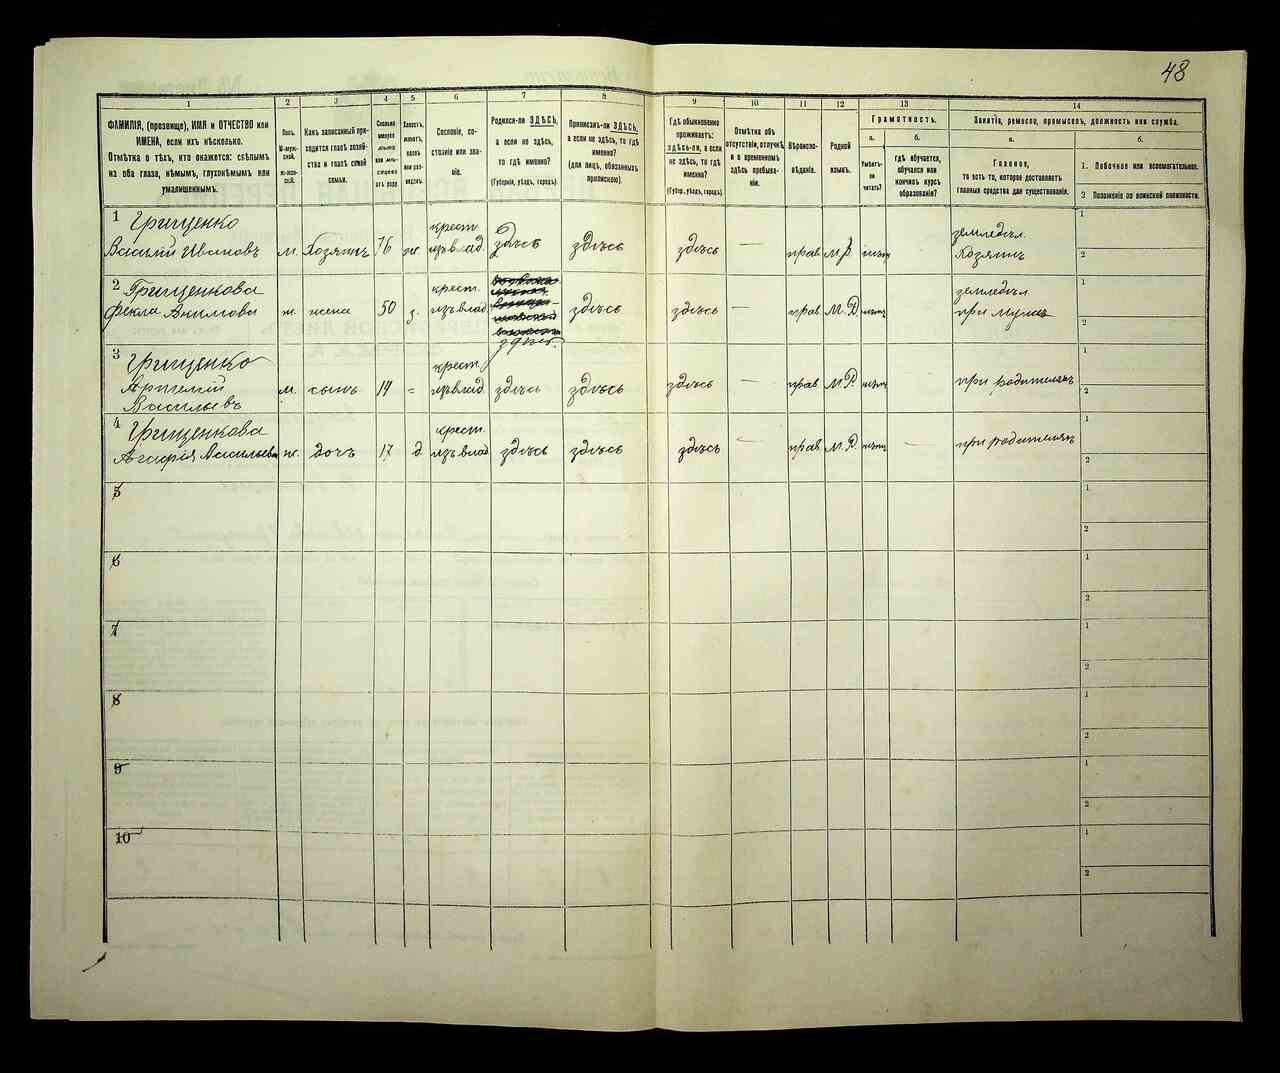 48
1
2
3
4
5
6
7
8
9
10
11
12
13
14
ФАМИЛІЯ, (прозвище), ИМЯ и ОТЧЕСТВО или
ИМЕНА, если ихъ нѣсколько.
Отмѣтка о тѣхъ, кто окажется: слѣпымъ
на оба глаза, нѣмымъ, глухонѣмымъ или
умалишеннымъ.
Полъ.
М-муж-
ской.
Ж-жен-
скій.
Какъ записанный при-
ходится главѣ хозяй-
ства и главѣ своей
семьи.
Сколько
минуло
лѣтъ
или мѣ-
сяцевъ
отъ роду.
Холостъ,
женатъ,
вдовъ
или раз-
веденъ.
Сословіе, со-
стояніе или зва-
ніе.
Родился-ли ЗДѢСЬ,
а если не здѣсь,
то гдѣ именно?
(Губернія, уѣздъ, городъ).
Приписанъ-ли ЗДѢСЬ,
а если не здѣсь, то гдѣ
именно?
(для лицъ, обязанныхъ
припискою).
Гдѣ обыкновенно
проживаетъ:
здѣсь-ли, а если
не здѣсь, то гдѣ
именно?
(Губер., уѣздъ, городъ).
Отмѣтка объ
отсутствіи, отлучкѣ
и о временномъ
здѣсь пребыва-
ніи.
Вѣроиспо-
вѣданіе.
Родной
языкъ.
Грамотность.
а.
Умѣетъ-
ли
читать?
б.
гдѣ обучается,
обучался или
кончилъ курсъ
образованія?
Занятіе, ремесло, промыселъ, должность или служба.
а.
Главное,
то есть то, которое доставляетъ
главныя средства для существованія.
б.
1. Побочное или вспомогательное.
2. Положеніе по воинской повинности.
1 Грищенко крест. земледѣл. 1
Василій Ивановъ м. Хозяинъ 76 ж изъ влад. здѣсь здѣсь здѣсь — прав. М.Р. Хозяинъ 2
2 Грищенкова крест. земледѣл 1
Фекла Акимова ж. жена 50 з. изъ влад. здѣсь здѣсь — прав. М.Р. при мужѣ 2
здѣсь.
3 Грищенко крест. 1
м. сынъ 14 = изъ влад. здѣсь здѣсь здѣсь — прав. М.Р. при родителяхъ 2
Васильевъ
4 Грищенкова крест. 1
Агафія Васильева ж. дочь 17 д. изъ влад. здѣсь здѣсь здѣсь — прав. М.Р. — при родителяхъ 2
5 1
2
6 1
2
7 1
2
8 1
2
9 1
2
10 1
2